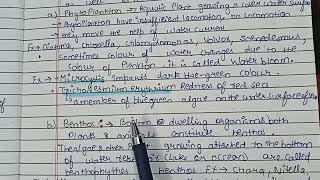 a) Phytoplankton → Aquatic Plant growing & over water surface
• Phytoplankton have insufficient locomotion, no locomotion
• they move the help of water current
Ex → Diatoms, chlorella, chlamydomonas, Volvox, Scenedesmus,
• Sometimes colour of water changes due to the
Colour of Plankton. it is called Water bloom.
Ex → Microcystis imparts dark blue-green colour.
Trichodesmium erythrium Redness of red sea
a member of blue green algae on the water surface
b) Benthos → Bottom dwelling organisms both
Plants & animals constitute benthos.
The algae growing attached to the bottom
of water (lake or occean) are called
benthophytes benthos Ex → Chara, Nitella,